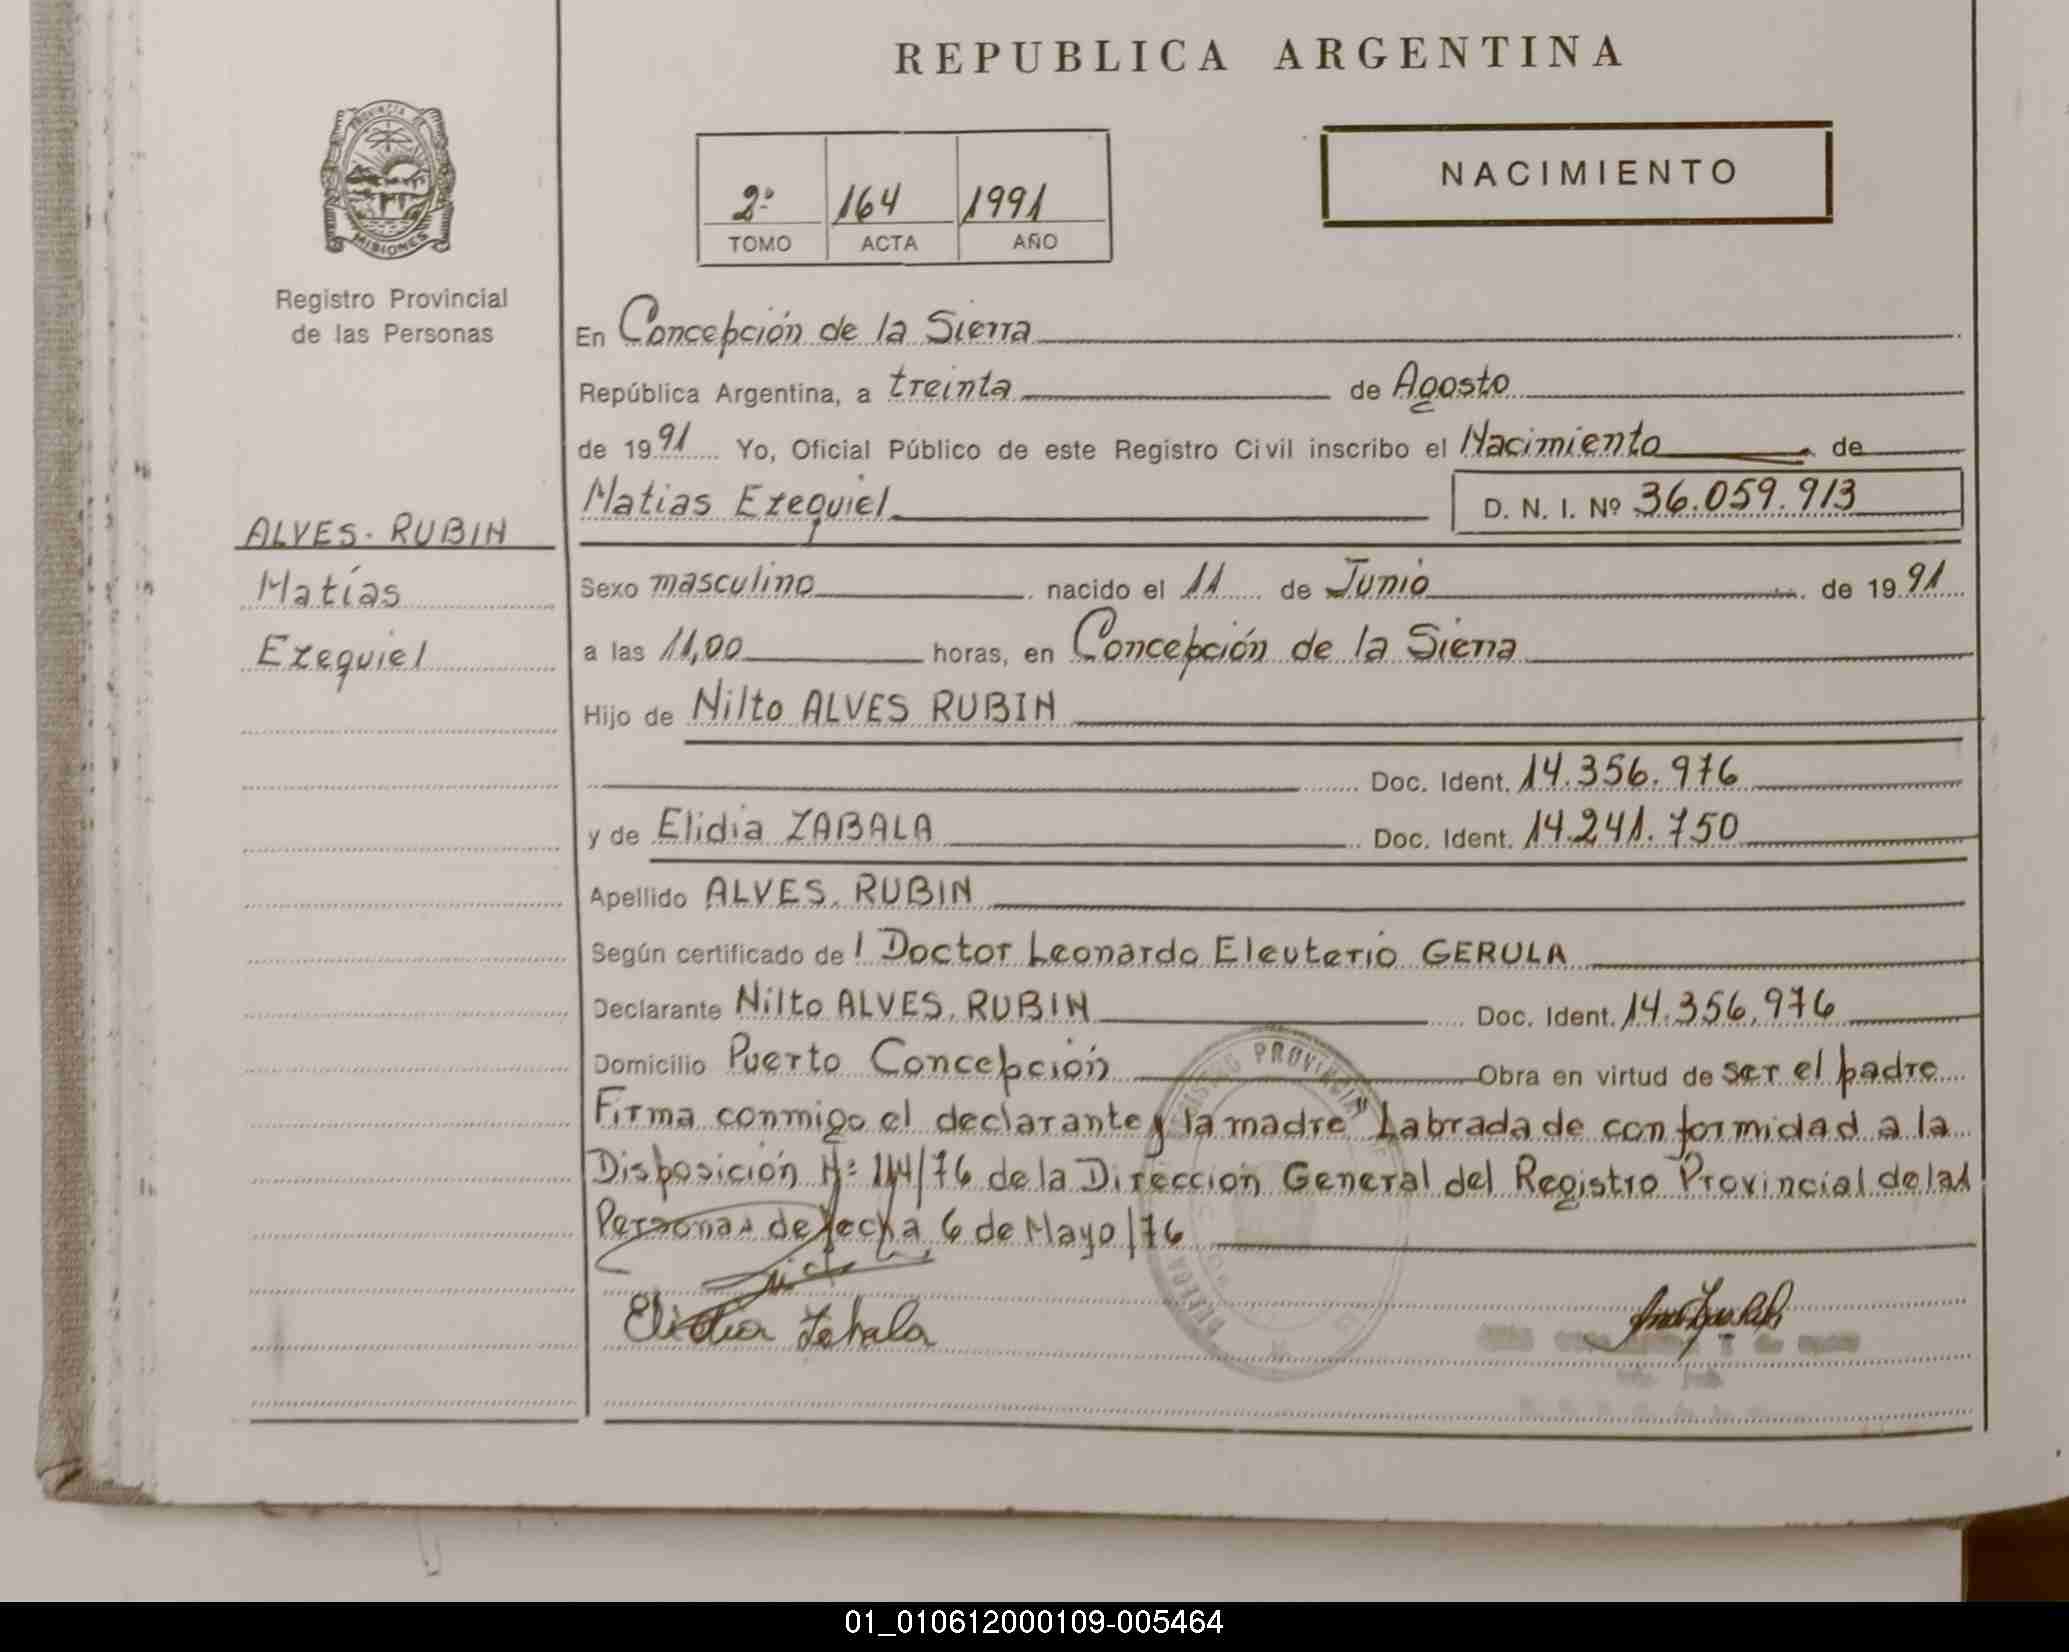 REPUBLICA ARGENTINA
PROVINCIA DE MISIONES
Registro Provincial
de las Personas
2º 164 1991
TOMO ACTA AÑO
NACIMIENTO
En Concepción de la Sierra
República Argentina, a treinta de Agosto
de 1991 Yo, Oficial Público de este Registro Civil inscribo el Nacimiento de
Matias Ezequiel D. N. I. Nº 36.059.913
ALVES. RUBIN
Matías
Ezequiel
Sexo masculino nacido el 11 de Junio de 1991
a las 11,00 horas, en Concepción de la Sierra
Hijo de Nilto ALVES RUBIN
Doc. Ident. 14.356.976
y de Elidia ZABALA Doc. Ident. 14.241.750
Apellido ALVES. RUBIN
Según certificado de l Doctor Leonardo Eleuterio GERULA
Declarante Nilto ALVES. RUBIN Doc. Ident. 14.356.976
Domicilio Puerto Concepción Obra en virtud de ser el padre
Firma conmigo el declarante y la madre" Labrada de conformidad a la
Disposición Nº 114/76 de la Dirección General del Registro Provincial de las
Personas de fecha 6 de Mayo/76
Elidia Zabala
01_010612000109-005464